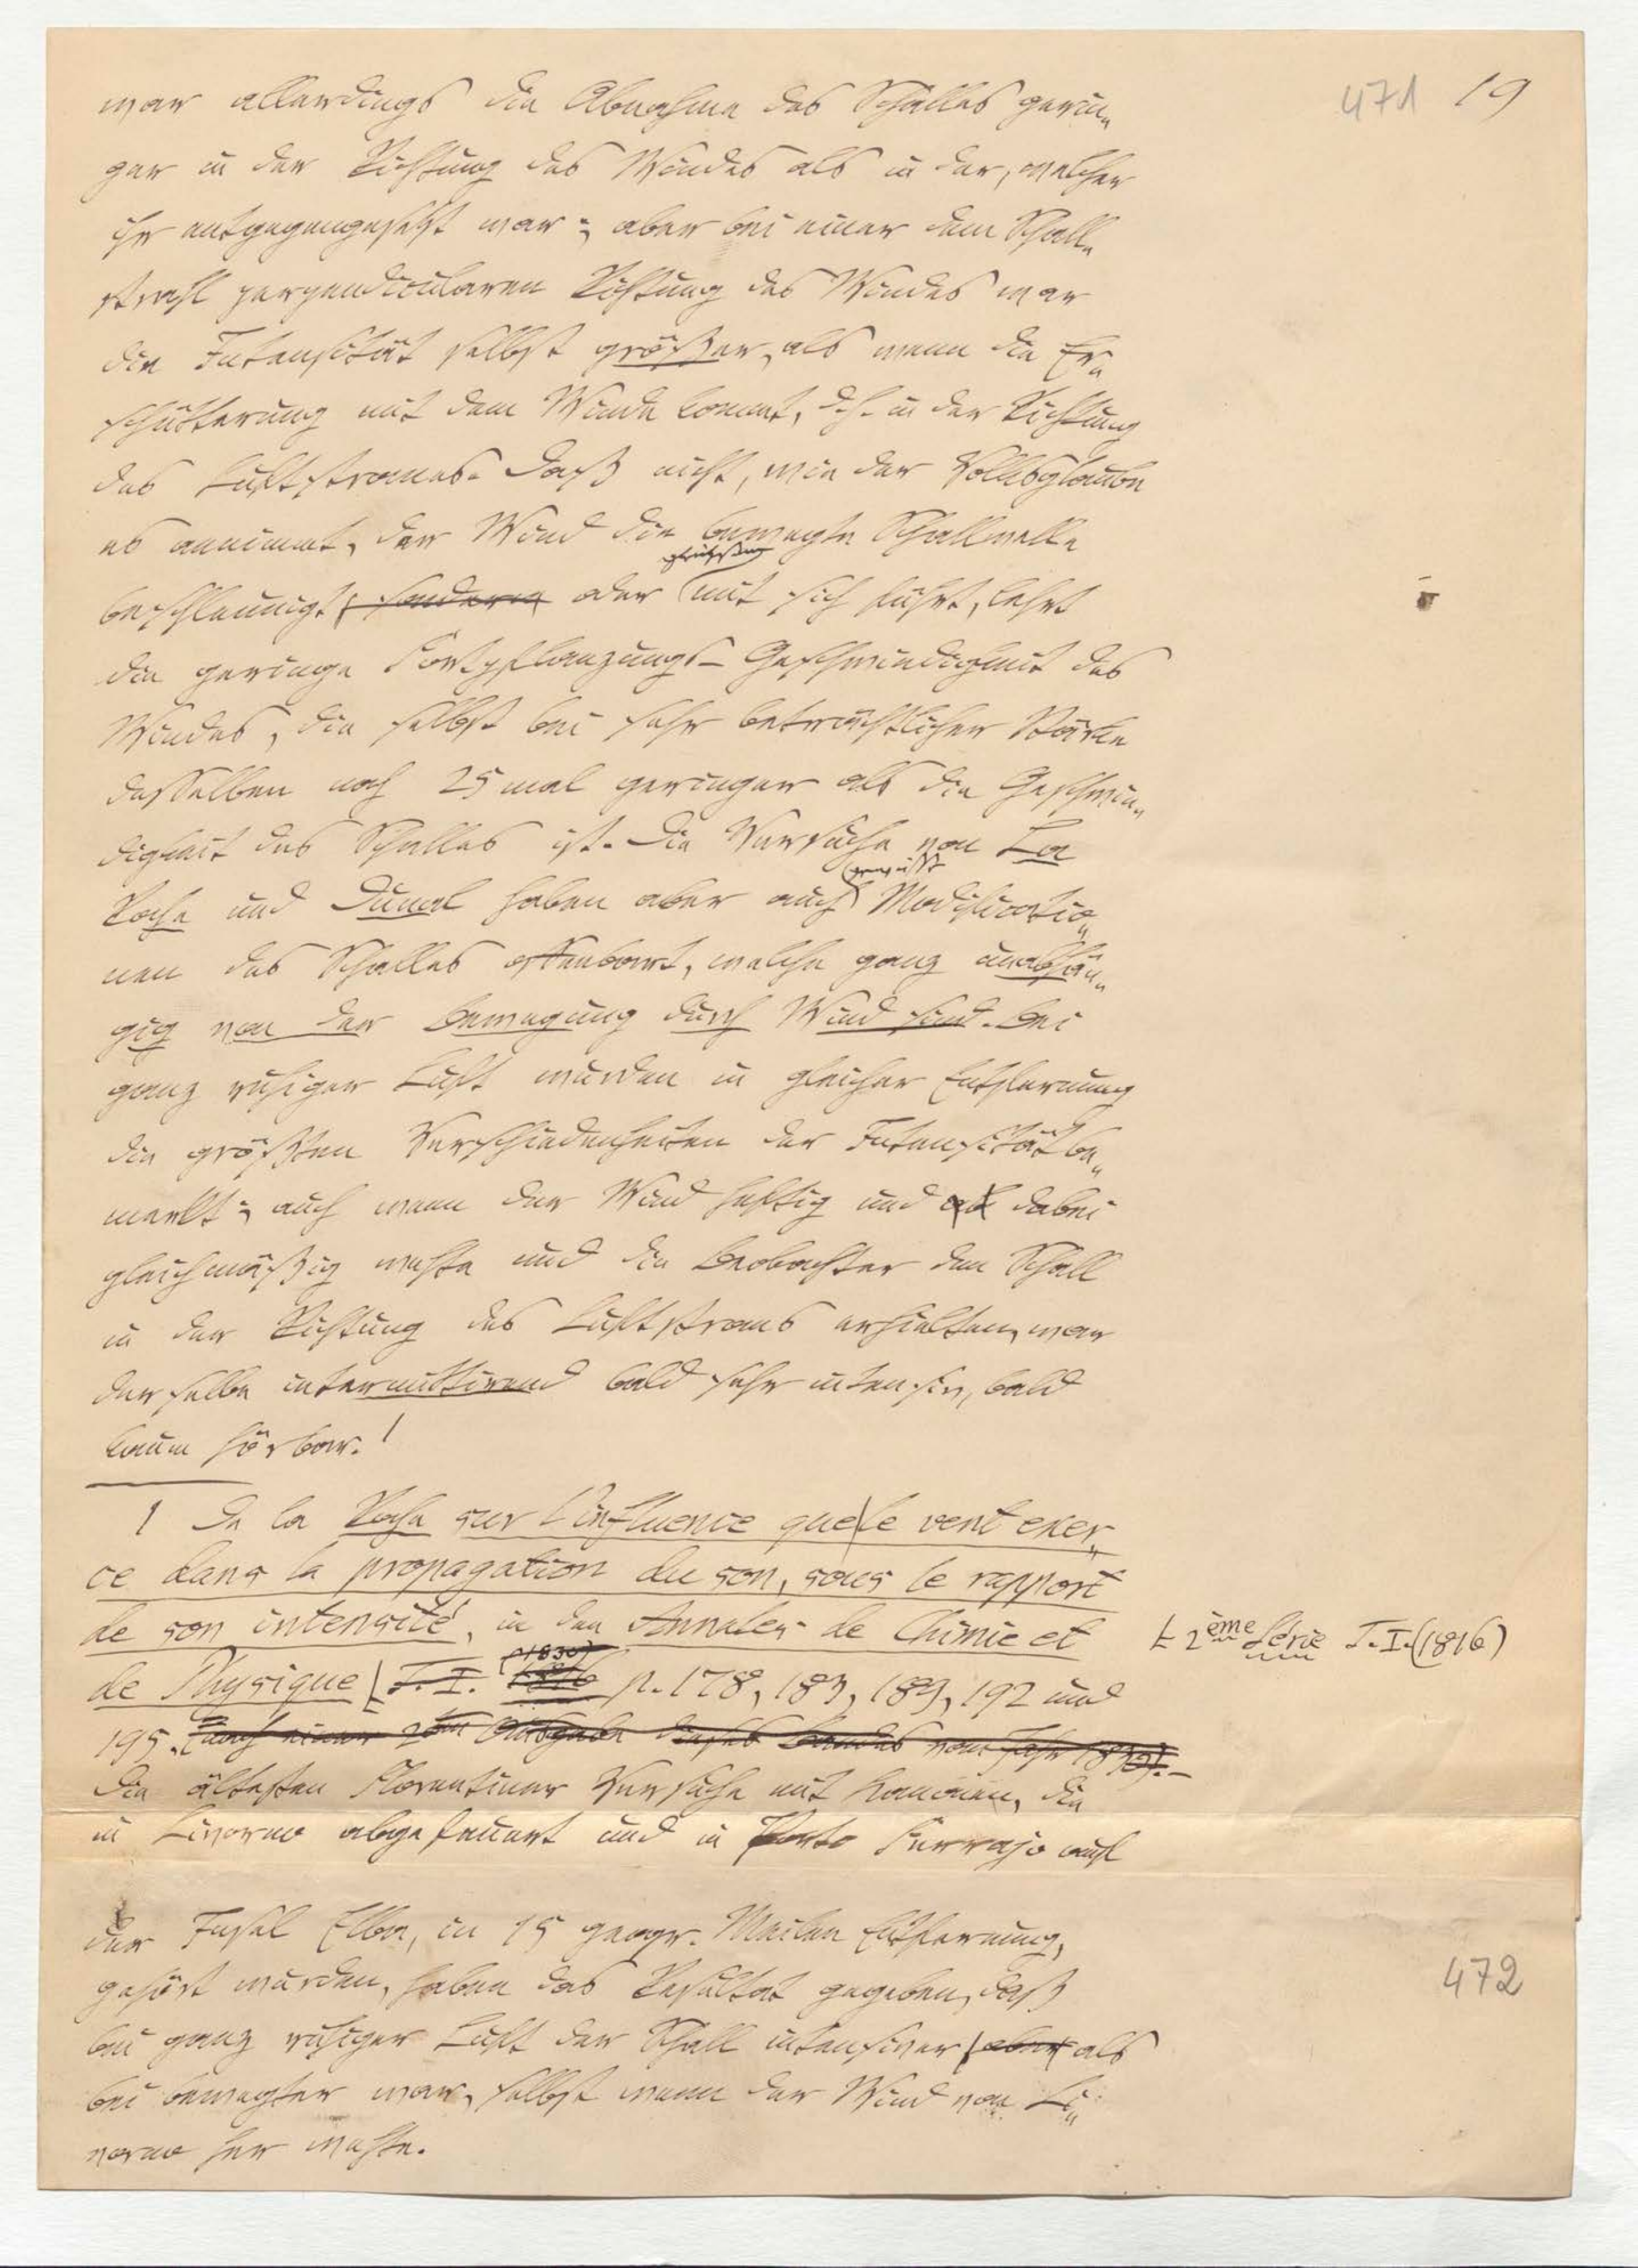 471 19
war allerdings die Abnahme des Schalles gerin„
ger in der Richtung des Windes als in der, welcher
ihr entgegengesetzt war; aber bei einer dem Schall„
strahl perpendicularen Richtung des Windes war
die Intensität selbst größer, als wenn die Er„
schütterung mit dem Winde kommt, d. h. in der Richtung
des Luftstromes. Daß nicht, wie der Volksglaube
es annimmt, der Wind die bewegte Schallwelle
gleichsam
beschleunigt sondern oder mit sich führt, lehrt
die geringe Fortpflanzungs-Geschwindigkeit des
Windes, die selbst bei sehr beträchtlicher Stärke
desselben noch 25 mal geringer als die Geschwin„
digkeit des Schalles ist. Die Versuche von La
gewisse
Roche und Dunal haben aber auch Modificatio„
nen des Schalles offenbart, welche ganz unabhän„
gig von der Bewegung durch Wind sind. Bei
ganz ruhiger Luft wurden in gleicher Entfernung
die größten Verschiedenheiten der Intensität be„
merkt; auch wenn der Wind heftig und dabei
gleichmäßig wehte und die Beobachter den Schall
in der Richtung des Luftstroms erhielten, war
derselbe intermittirend bald sehr intensiv, bald
kaum hörbar.1
1 De la Roche sur l'influence que le vent exer„
ce dans la propagation du son, sous le rapport
de son intensité, in den Annales de Chimie et
2ème Série T. I. (1816)
(1830)
de Physique T. I. 1816 p. 178, 183, 189, 192 und
195. (nach einer 2ten Ausgabe dieses Bandes vom Jahr 1830). –
Die ältesten Florentiner Versuche mit Kanonen, die
in Livorno abgefeuert und in Porto Ferrajo auf
der Insel Elba, in 15 geogr. Meilen Entfernung,
472
gehört wurden, haben das Resultat gegeben, daß
bei ganz ruhiger Luft der Schall intensiver aber als
bei bewegter war, selbst wenn der Wind von Li„
vorno her wehte.